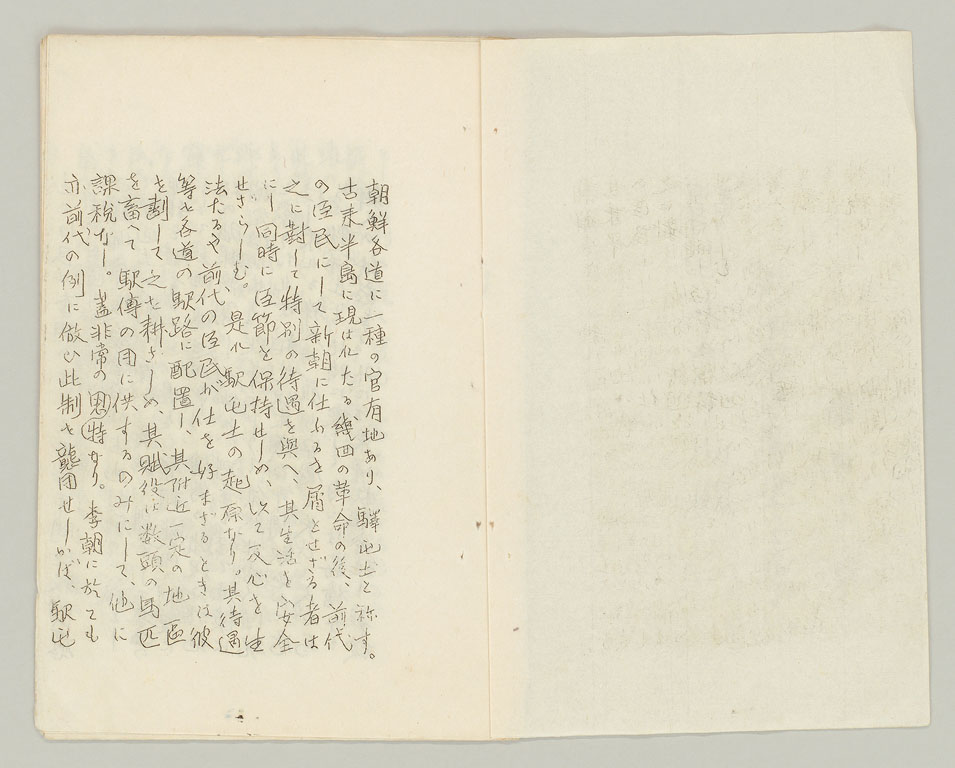 朝鮮各道に一種の官有地あり、驛屯土と称す。
古来半島に現はれたる幾回の革命の後、前代
の臣民にして新朝に仕ふるを屑とせざる者は
之に對して特別の待遇を與へ、其生活を安全
にし同時に臣節を保持せしめ、以て反心を生
せざらしむ。是れ駅屯土の起原なり。其待遇
法たるや前代の臣民が仕を好まざるときは彼
等を各道の駅路に配置し、其附近一定の地區
を劃して之を耕さしめ、其賦役は数頭の馬匹
を畜へて駅傳の用に供するのみにして、他に
課税なし。蓋非常の恩特なり。李朝に於ても
亦前代の例に倣ひ此制を襲用せしかば、駅屯